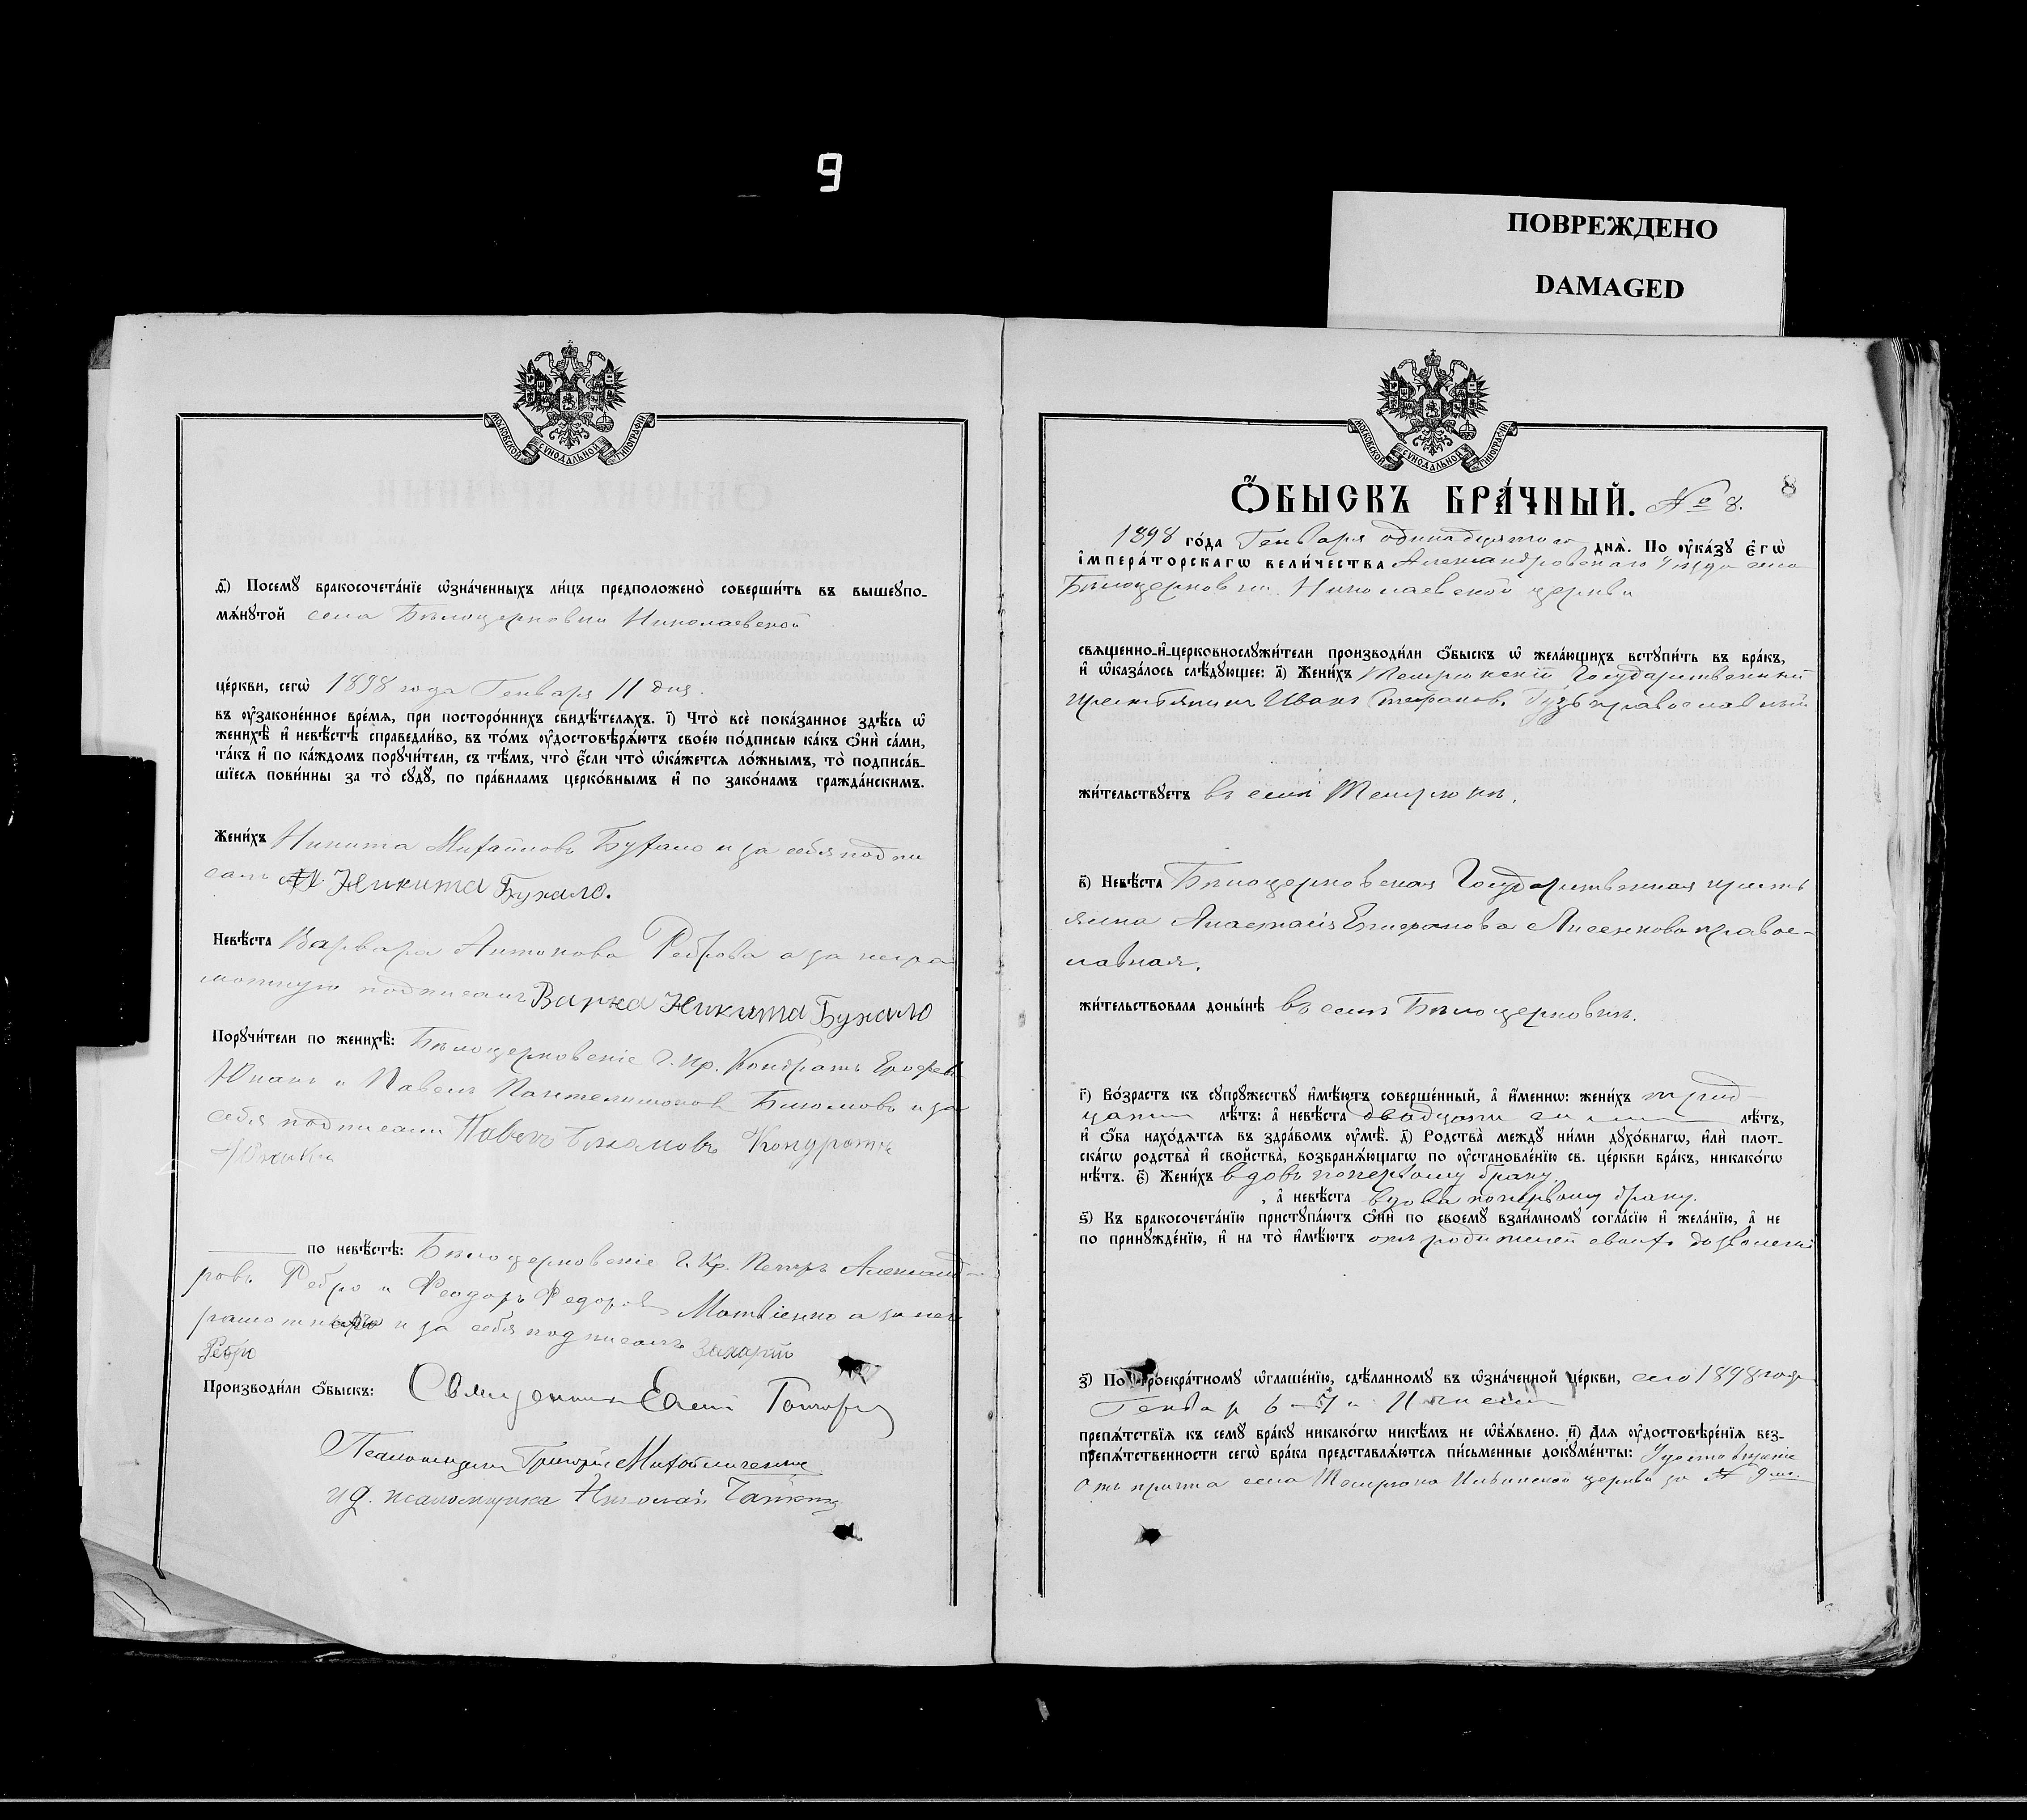 9
ПОВРЕЖДЕНО
DAMAGED
МОСКОВСКОЙ СУНОДАЛЬНОЙ ТИПОГРАФІИ
д҃) Посемꙋ бракосочета́нїе ѡзна́ченныхъ ли́цъ предположено̀ соверши́ть въ вышеꙋпо-
мѧ́нꙋтой села Бѣлоцерковки Николаевской
це́ркви, сегѡ̀ 1898 года Генваря 11 дня.
въ ᲂу҆зако́нённое вре́мѧ, при посторо́ннихъ свидѣ́телѧхъ. і҃) Что̀ всѐ пока́занное здѣ́сь ѡ҆
женихѣ̀ и҆ невѣ́стѣ справедли́во, въ то́мъ ᲂу҆достовѣрѧ́ютъ свое́ю по́дписью ка́къ ѻ҆нѝ са́ми,
та́къ и҆ по ка́ждомъ порꙋчи́тели, съ тѣ́мъ, что̀ є҆́сли что̀ ѡ҆ка́жетсѧ ло́жнымъ, то̀ подписа́в-
шїесѧ пови́нны за то̀ сꙋдꙋ̀, по пра́виламъ церко́внымъ и҆ по зако́намъ гражда́нскимъ.
Жени́хъ Никита Михайловъ Бухало и за себя подпи
салъ Никита Бухало.
Невѣ́ста Варвара Антонова Реброва а за негра
мотную подписалъ Никита Бухало
Порꙋчи́тели по женихѣ̀: Бѣлоцерковскіе Г. кр. Кондратъ Ерофеев
Юхакъ и Павелъ Пантелимонов и за
себя подписали Павелъ Кондратъ
по невѣ́стѣ: Бѣлоцерковскіе Г. Кр. Петръ Александ-
ровъ Ребро и Феодоръ Федоровъ Матвіенко а за нег
рамотнаго и за себя подписалъ Захарій
Ребро
Производи́ли ѻ҆́быскъ: Священникъ
Псаломщикъ Григорій
и д. псаломщика Николай
МОСКОВСКОЙ СУНОДАЛЬНОЙ ТИПОГРАФІИ
Ѻ҆́быскъ бра́чный. № 8. 8
1898 го́да Генваря одинадцатаго днѧ̀. По ᲂу҆ка́зꙋ є҆гѡ̀
і҆мпера́торскагѡ вели́чества Александровскаго уѣзда села
Бѣлоцерковки Николаевской церкви
свѧщенно-и҆-церковнослꙋжи́тели производи́ли ѻ҆́быскъ ѡ҆ жела́ющихъ встꙋпи́ть въ бра́къ,
и҆ ѡ҆каза́лось слѣ́дꙋющее: а҃) Жени́хъ Темрюкскій Государственный
крестьянинъ Иванъ Стефановъ Гузь православный
жи́тельствꙋетъ въ селѣ Темрюкѣ.
в҃) Невѣ́ста Бѣлоцерковская Государственная кресть
янка Анастасія Епифанова Лисенкова правос-
лавная.
жи́тельствовала доны́нѣ въ селѣ Бѣлоцерковкѣ.
г҃) Во́зрастъ къ сꙋпрꙋ́жествꙋ и҆мѣ́ютъ соверше́нный, а҆ и҆́меннѡ: жени́хъ трид-
цати лѣ́тъ: а҆ невѣ́ста двадцати лѣ́тъ,
и҆ ѻ҆́ба нахо́дѧтсѧ въ здра́вомъ ᲂу҆мѣ̀. д҃) Родства̀ междꙋ ни́ми дꙋхо́внагѡ, и҆лѝ плот-
ска́гѡ родства̀ и҆ сво́йства, возбранѧ́ющагѡ по ᲂу҆становле́нїю св. це́ркви бра́къ, никако́гѡ
нѣ́тъ. є҃) Жени́хъ вдовъ по первому браку
, а҆ невѣ́ста вдова по первому браку.
ѕ҃) Къ бракосочета́нїю пристꙋпа́ютъ ѻ҆нѝ по своемꙋ̀ взаи́мномꙋ согла́сїю и҆ жела́нїю, а҆ не
по принꙋжде́нїю, и҆ на то̀ и҆мѣ́ютъ отъ родителей своихъ дозволеніе
з҃) По троекра́тномꙋ ѡ҆глаше́нїю, сдѣ́ланномꙋ въ ѡ҆зна́ченной це́ркви, сего 1898 года
Генвар 6
препѧ́тствїѧ къ семꙋ̀ бра́кꙋ никако́гѡ никѣ́мъ не ѡ҆б̾ѧ́влено. и҃) Длѧ ᲂу҆достовѣре́нїѧ без-
препѧ́тственности сегѡ̀ бра́ка представлѧ́ютсѧ пи́сьменные докꙋме́нты: Удостовѣреніе
отъ причта села Темрюка Ильинской церкви за №